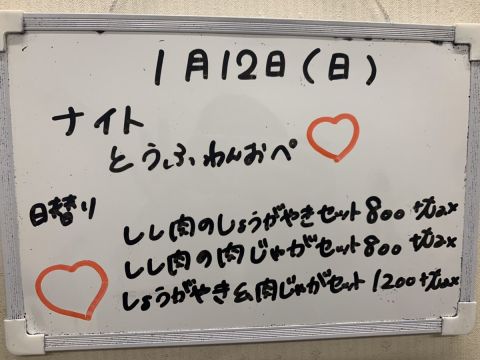 1月12日(日)
ナイト
とうふわんおぺ
日替り
しし肉のしょうがやきセット 800+tax
しし肉の肉じゃがセット 800+tax
しょうがやき&肉じゃがセット 1200+tax